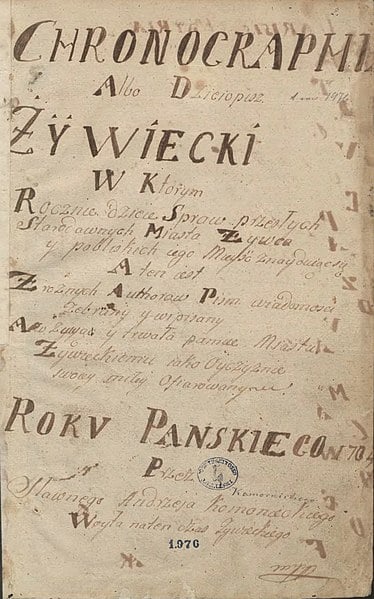 CHRONOGRAPHI
Albo Dzieiopisz
ŻYWIECKI
W Ktorym
Rocznie dzieie Spraw przeszłych
Starodawnych Miasta Żywca
y pobliskich iego Mieysc znayduiący
A ten iest
Z roznych Authorow Pism wiadomosci
Zebrany y wypisany
A na
Zywieckiemu iako Oyczyznie
swoiey miłey Ofiarowany
ROKV PANSKIEGO 1704
Przez
Sławnego Andrzeja Komonieckiego
Woyta na ten czas Zywieckiego
1976
mpp